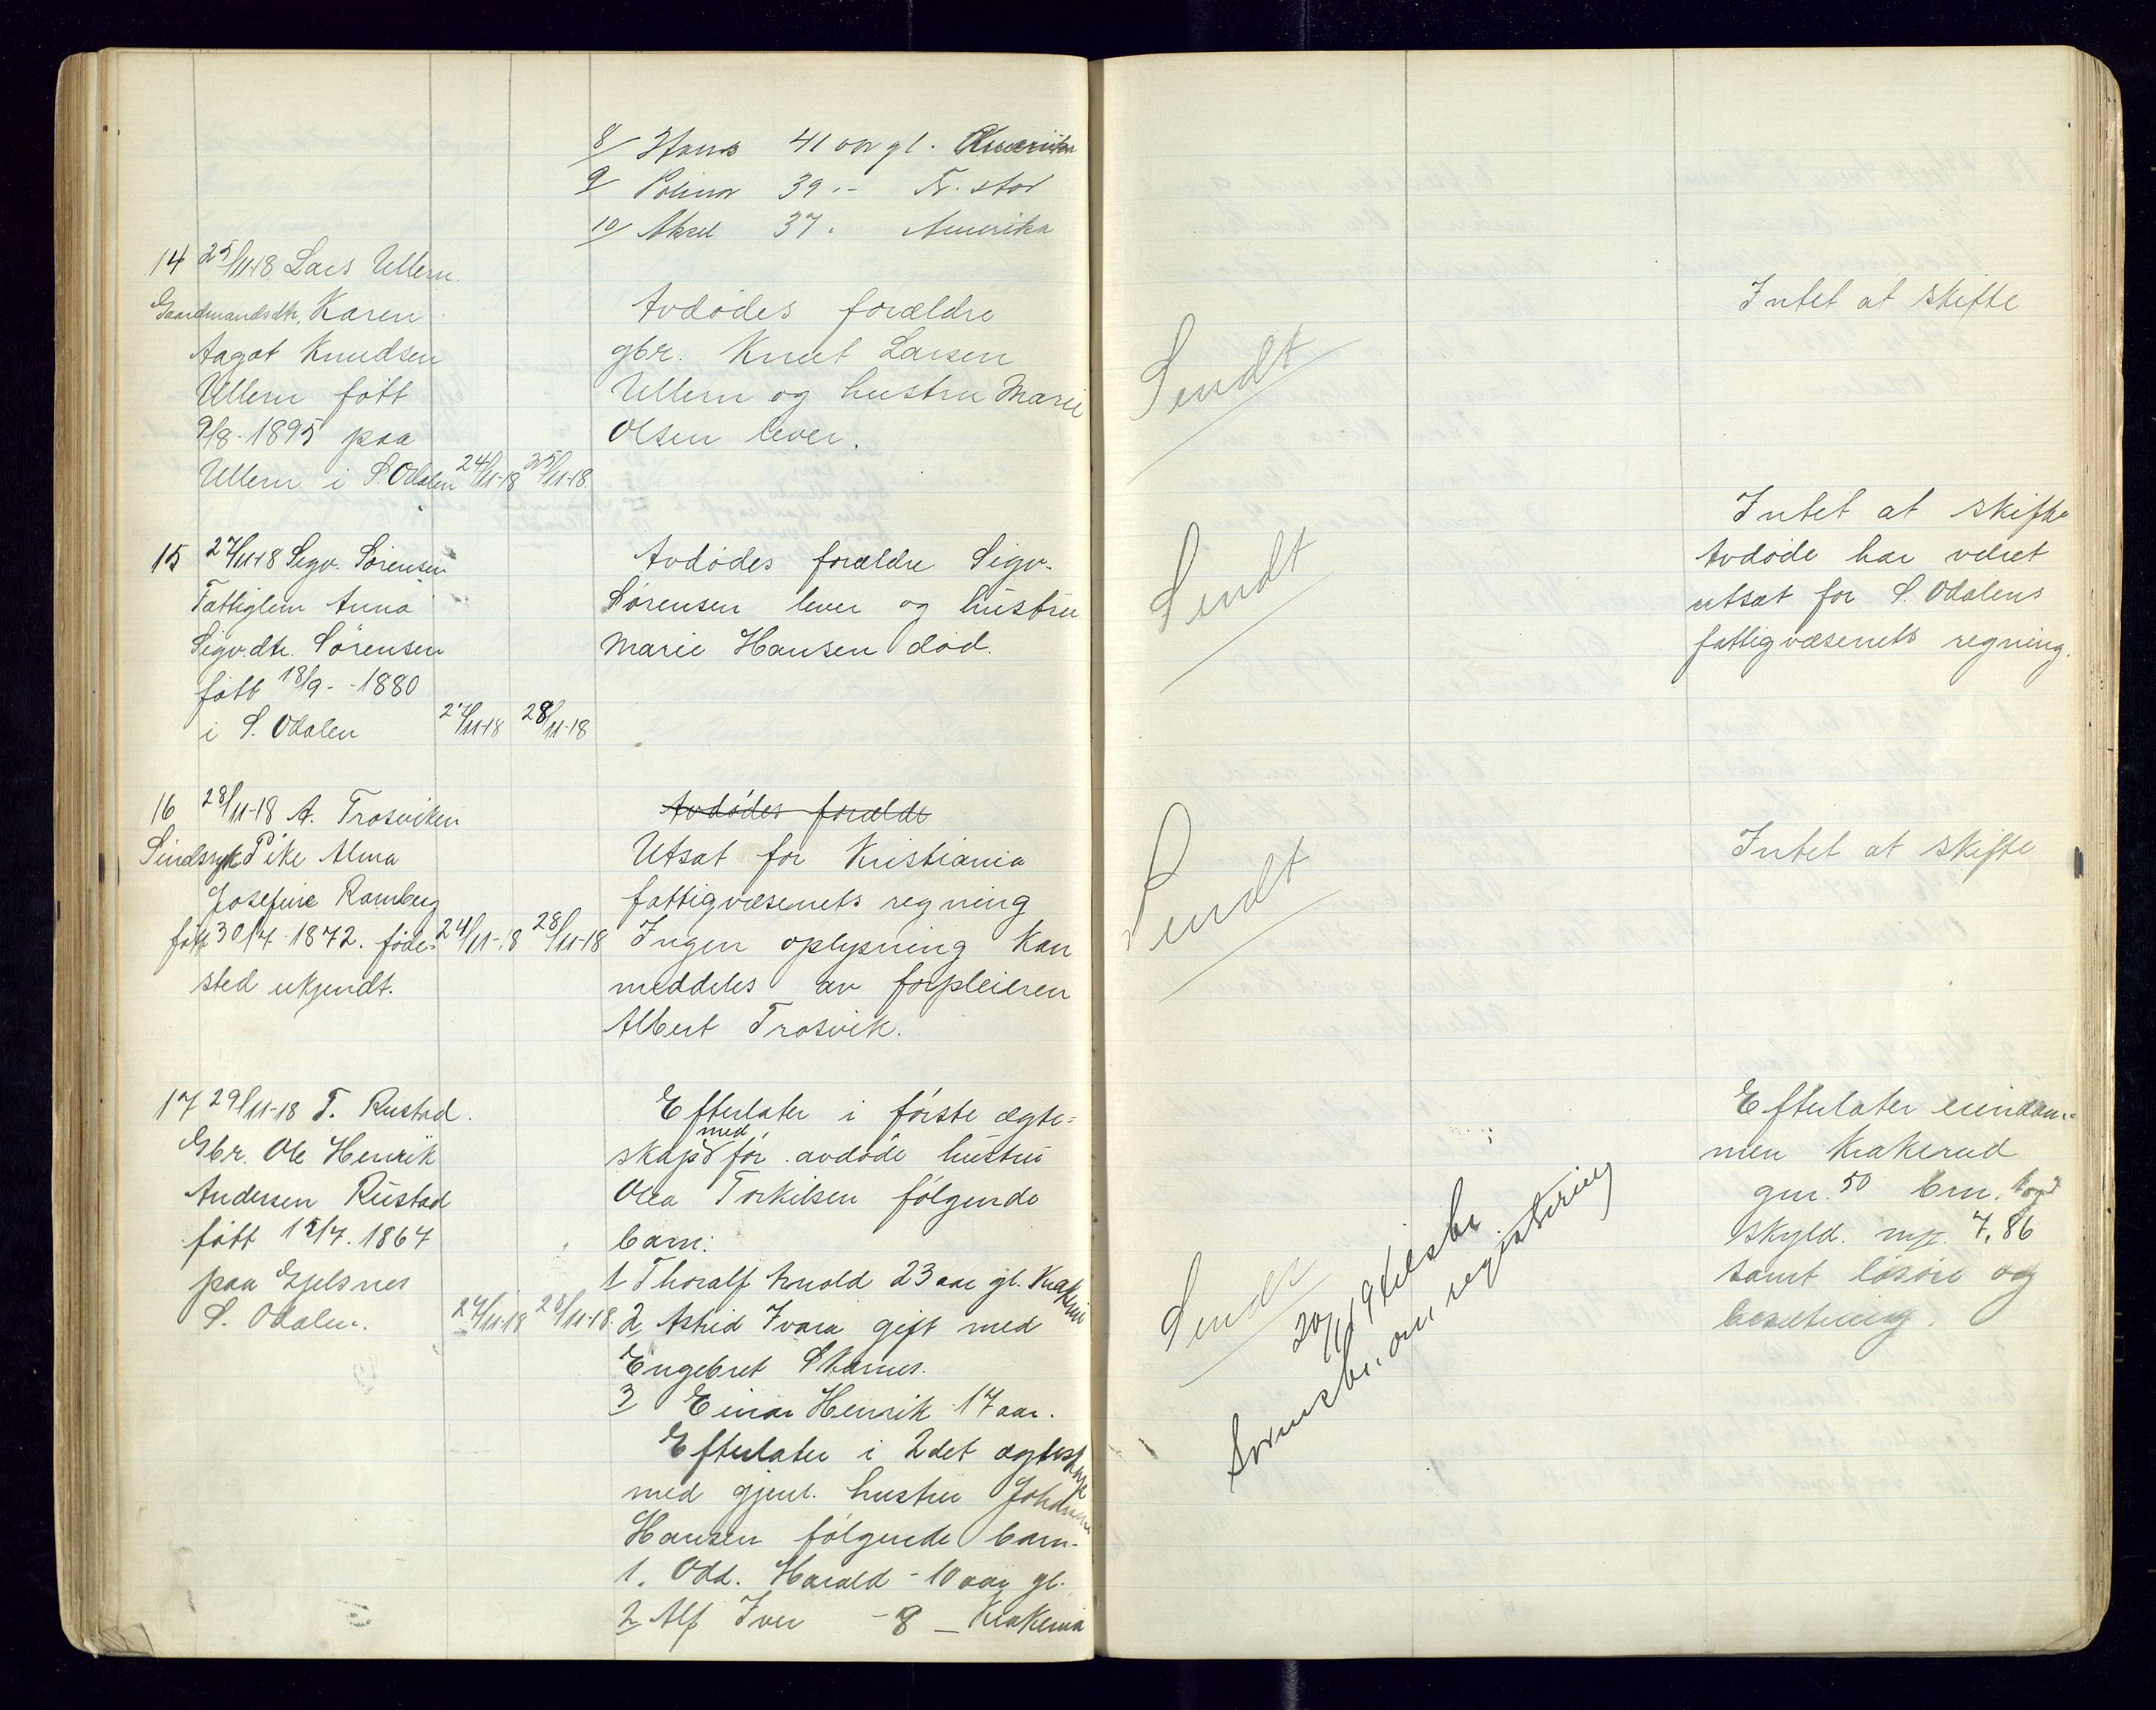 8/ Hans 41 aar gl. Amerika
9/ 39 -
10/ Aksel 37 " Amerika
14 25/11-18 Lars Ullern.
Gaardmandsdtr. Karen
Aagot Knudsen
Ullern født
9/8-1895 paa
Ullern i S. Odalen 24/11-18 25/11-18.
Avdødes forældre
gbr. Knut Larsen
Ullern og hustru Marie
Olsen lever.
Sendt
Intet at skifte
15 27/11-18 Sigv. Sørensen
Fattiglem Anna
Sigv.dtr. Sørensen
født 18/9 - 1880
i S. Odalen 27/11-18 28/11-18
Avdødes forældre Sigv.
Sørensen lever og hustru
Marie Hansen død.
Sendt
Intet at skifte
Avdøde har været
utsat for S. Odalens
fattigvæsenets regning.
16 28/11-18 A. Trosviken
Sindssyk Pike Alma
Josefine Ramberg
født 30/7 1872. føde-
sted ukjendt.
24/11-18 28/11-18
Avdødes forældr
Utsat for Kristiania
fattigvæsenets regning
Ingen oplysning kan
meddeles av forpleieren
Albert Trosvik.
Sendt
Intet at skifte
17 29/11-18 T. Rustad.
Gbr. Ole Henrik
Andersen Rustad
født 15/7. 1864
paa Gjelsnes
S. Odalen. 27/11-18 28/11-18.
Efterlater i første ægte-
skap med før avdøde hustru
Olea Torkilsen følgende
barn:
1 Thoralf Arnold 23 aar gl. Krakerud
2 Astrid Ivara gift med
Engebret Skarnes.
3 Einar Henrik 17 aar.
Efterlater i 2det ægteskap
med gjenl. hustru Johanne
Hansen følgende barn.
1. Odd. Harald - 10 aar gl.
2 Alf Iver - 8 - Krakerud
Sendt
20/1 19
om registrering
Efterlater eiendom-
men Krakerud
gnr. 50 brn.
skyld. mrk. 7,86
samt løsøre og
besetning.